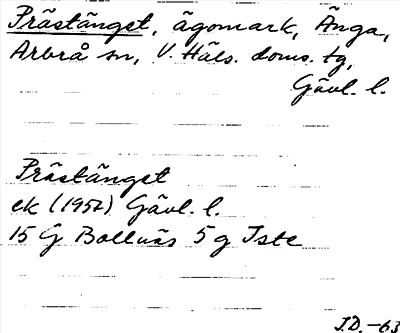 Prästänget, ägomark, Änga,
Arbrå sn, V. Häls. doms. tg,
Gävl. l.
Prästänget
ek (1957) Gävl. l.
15 G Bollnäs 5 g Iste
J.D. -63